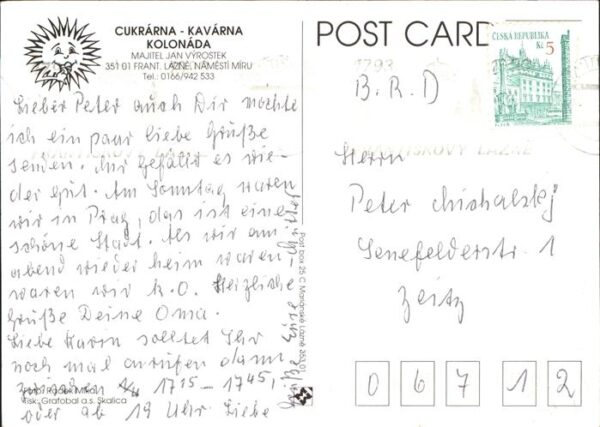 CUKRÁRNA - KAVÁRNA
KOLONÁDA
MAJITEL JAN VÝROSTEK
351 01 FRANT. LÁZNĚ, NÁMĚSTÍ MÍRU
Tel.: 0166/942 533
Lieber Peter auch Dir möchte
ich ein paar liebe Grüße
senden. Mir gefällt es wie-
der gut. Am Sonntag waren
wir in Prag, das ist eine
schöne Stadt. Als wir am
abend wieder heim waren
waren wir k.O. Herzliche
Grüße Deine Oma.
Liebe Karin solltet Ihr
noch mal anrufen dann
17 15 - 17 45,
oder ab 19 Uhr. Liebe
Grüße Eure
Tisk: Grafobal a.s. Skalica
Post box 25 C Mariánské Lázně 353 01
POST CARD
ČESKÁ REPUBLIKA
Kč 5
FRANTIŠKOVY LÁZNĚ
B.R.D
Herrn
Peter
Senefelderstr. 1
Zeitz
0 6 7 1 2